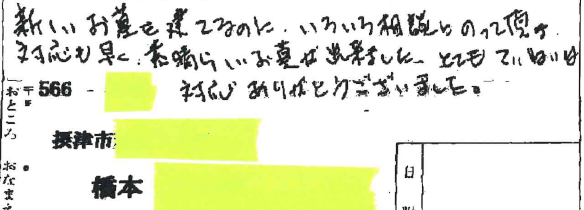 新しいお墓を建てるのに、いろいろ相談にのって頂き
対応も早く、素晴らしいお墓が出来ました、とてもていねいな
対応ありがとうございました。
おところ
〒566-
摂津市
おなまえ
橋本
日